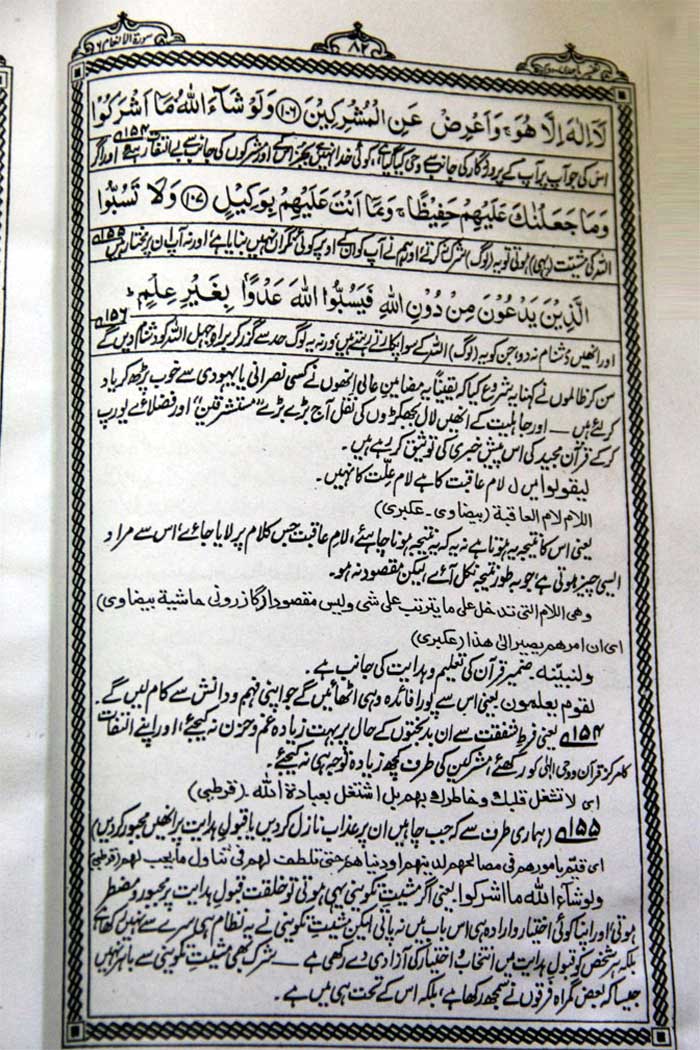 سورة الانعام ٦
٨٢
لَآ اِلٰهَ اِلَّا هُوَۚ وَاَعْرِضْ عَنِ الْمُشْرِكِيْنَ ۝١٠٦ وَلَوْ شَآءَ اللّٰهُ مَآ اَشْرَكُوْا
اس کی جو آپ پر آپ کے پروردگار کی جانب سے وحی کیا گیا ہے، کوئی خدا نہیں بجز اس کے اور مشرکوں کی جانب سے بے التفات رہیے ۱۵۴؎ اور اگر
وَمَا جَعَلْنٰكَ عَلَيْهِمْ حَفِيْظًاۚ وَمَآ اَنْتَ عَلَيْهِمْ بِوَكِيْلٍ ۝١٠٧ وَلَا تَسُبُّوا
اللہ کی مشیت (یہی) ہوتی تو یہ (لوگ) شرک نہ کرتے اور ہم نے آپ کو ان کے اوپر کوئی نگران نہیں بنایا ہے، اور نہ آپ ان پر مختار ہیں ۱۵۵؎
الَّذِيْنَ يَدْعُوْنَ مِنْ دُوْنِ اللّٰهِ فَيَسُبُّوا اللّٰهَ عَدْوًۢا بِغَيْرِ عِلْمٍؕ
اور انھیں دُشنام نہ دو، جن کو یہ (لوگ) اللہ کے سوا پکارتے رہتے ہیں، ورنہ یہ لوگ حد سے گزر کر براہِ جہل اللہ کو دشنام دیں گے ۱۵۶؎
سن کر ظالموں نے کہنا یہ شروع کیا کہ یقیناً یہ مضامین عالی انھوں نے کسی نصرانی یا یہودی سے خوب پڑھ کر یاد
کر لئے ہیں ـــ اور جاہلیت کے انھیں لال بجھکڑوں کی نقل آج بڑے بڑے ”مستشرقین“ اور فضلائے یورپ
کر کے قرآن مجید کی اس پیش خبری کی توثیق کر رہے ہیں۔
لیقولوا میں ل لام عاقبت کا ہے لام علّت کا نہیں۔
اللام لام العاقبة (بیضاوی۔ عکبری)
یعنی اس کا نتیجہ یہ ہوتا ہے نہ یہ کہ یہ نتیجہ ہونا چاہئے، لامِ عاقبت جس کلام پر لایا جائے، اس سے مراد
ایسی چیز ہوتی ہے، جو بہ طور نتیجہ نکل آئے، لیکن مقصود نہ ہو۔
وھی اللام التی تدخل علی ما یترتب علی شی ولیس مقصودا (گازرونی حاشیۃ بیضاوی)
ای ان امرھم یصیر الی ھذا (عکبری)
ولنبیّنہ ضمیر قرآن کی تعلیم و ہدایت کی جانب ہے۔
لقوم یعلمون یعنی اس سے پورا فائدہ وہی اٹھائیں گے جو اپنی فہم و دانش سے کام لیں گے۔
۱۵۴؎ یعنی فرطِ شفقت سے ان بدبختوں کے حال پر بہت زیادہ غم و حزن نہ کیجئے، اور اپنے التفات
کا مرکز قرآن و وحی الٰہی کو رکھئے، مشرکین کی طرف کچھ زیادہ توجہ ہی نہ کیجئے۔
ای لا تشغل قلبک و خاطرک بھم بل اشتغل بعبادة اللہ۔ (قرطبی)
۱۵۵؎ (ہماری طرف سے کہ جب چاہیں ان پر عذاب نازل کردیں یا قبولِ ہدایت پر انھیں مجبور کردیں)
ای قیّم بامورھم فی مصالحھم لدینھم او دنیاھم حتی تلطفت لھم فی تناول ما یجب لھم (قرطبی)
ولوشآء اللہ ما اشرکوا۔ یعنی اگر مشیتِ تکوینی یہی ہوتی تو خلقت قبولِ ہدایت پر مجبور و مضطر
ہوتی، اور اپنا کوئی اختیار و ارادہ ہی اس باب میں نہ پاتی لیکن مشیتِ تکوینی نے یہ نظام ہی سرے سے نہیں رکھا ہے
بلکہ ہر شخص کو قبولِ ہدایت میں انتخاب و اختیار کی آزادی دے رکھی ہے ـــ شرک بھی مشیتِ تکوینی سے باہر نہیں
جیسا کہ بعض گمراہ فرقوں نے سمجھ رکھا ہے، بلکہ اس کے تحت ہی میں ہے۔